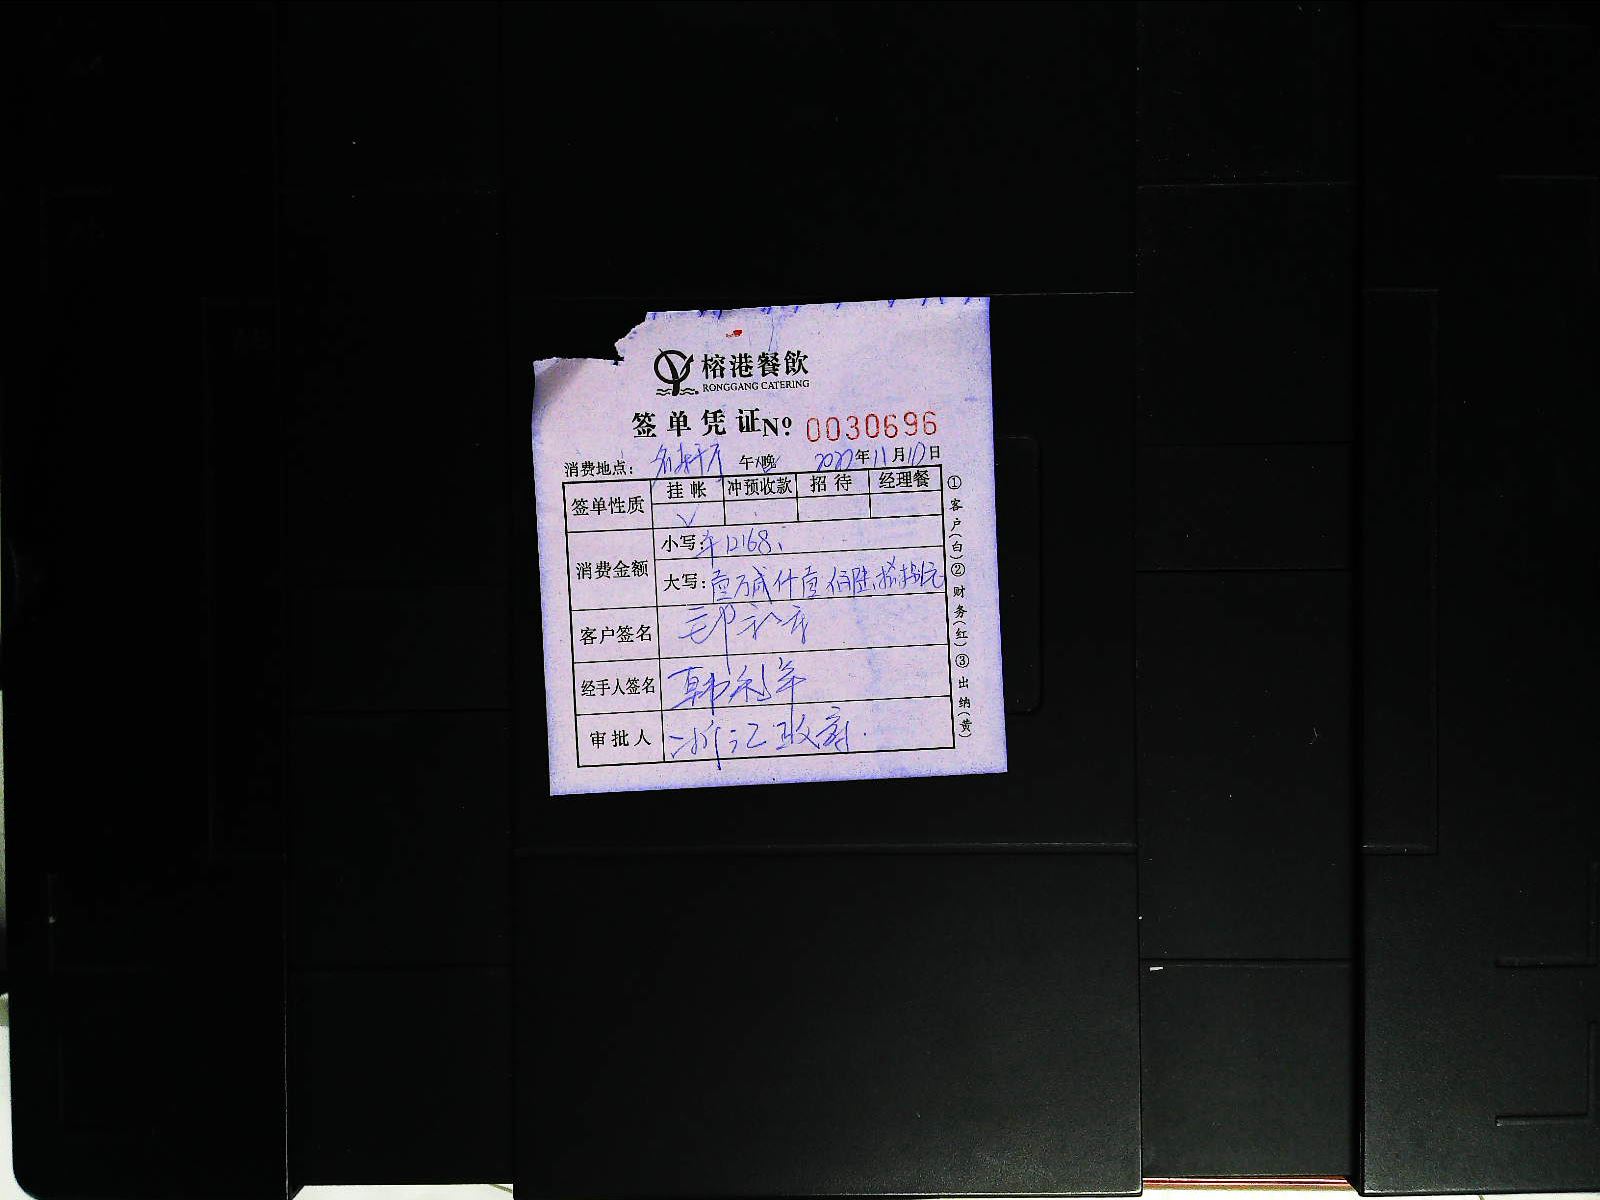 榕港餐飲
RONGGANG CATERING
签单凭证 Nº 0030696
消费地点: 午/晚 年11月17日
签单性质 挂帐 冲预收款 招待 经理餐
√
消费金额 小写: 12168.
大写: 壹万贰仟壹佰陆拾捌元
客户签名
经手人签名 韩利年
审批人 浙江政府.
①客户(白)②财务(红)③出纳(黄)